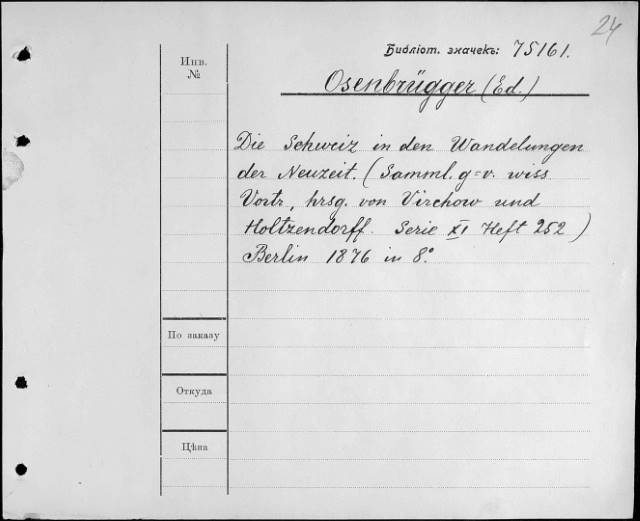 24
Библіот. значекъ: 75161.
Инв. №
Osenbrügger (Ed.)
Die Schweiz in den Wandelungen
der Neuzeit. (Samml. g=v. wiss
Vortr, hrsg. von Virchow und
Holtzendorff. Serie XI Heft 252)
Berlin 1876 in 8°.
По заказу
Откуда
Цѣна